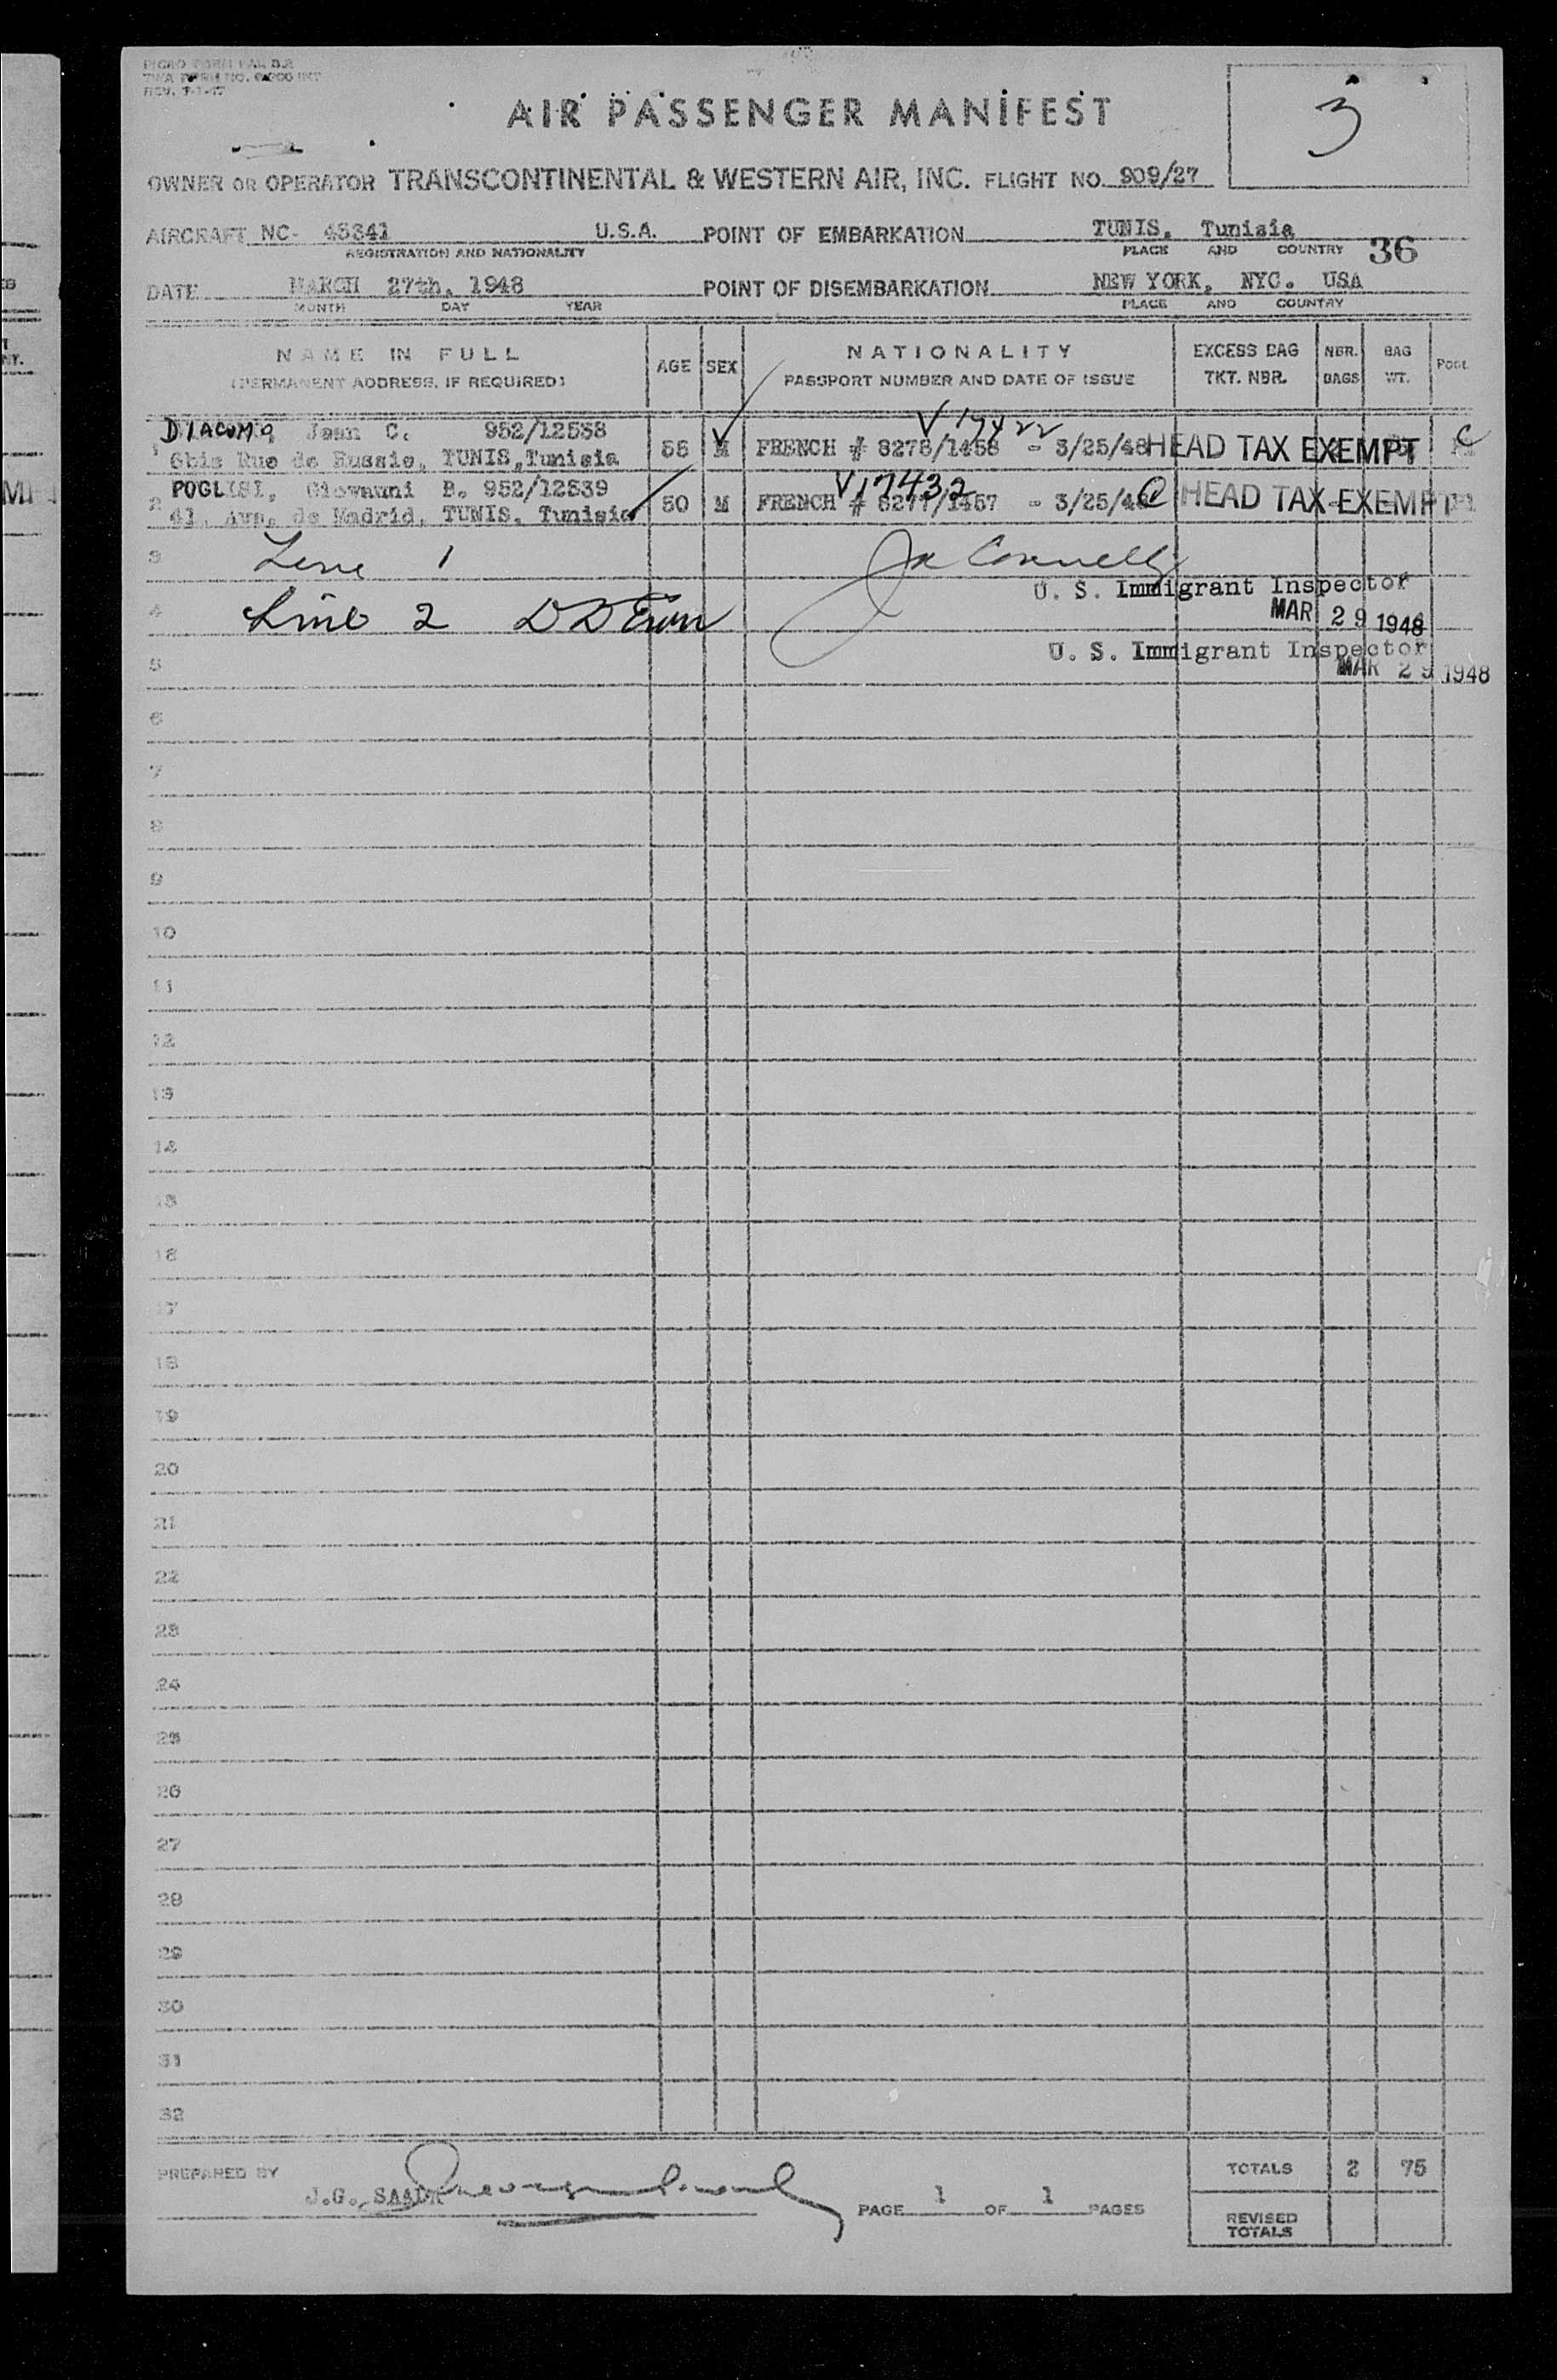 REV. 7-1-47
AIR PASSENGER MANIFEST
3
OWNER OR OPERATOR TRANSCONTINENTAL & WESTERN AIR, INC. FLIGHT NO. 909/27
AIRCRAFT NC- 45341 U.S.A. POINT OF EMBARKATION TUNIS, Tunisia
REGISTRATION AND NATIONALITY PLACE AND COUNTRY 36
DATE MARCH 27th, 1948 POINT OF DISEMBARKATION NEW YORK, NYC. USA
MONTH DAY YEAR PLACE AND COUNTRY
NAME IN FULL AGE SEX NATIONALITY EXCESS BAG NBR. BAG
(PERMANENT ADDRESS, IF REQUIRED) PASSPORT NUMBER AND DATE OF ISSUE TKT. NBR. BAGS WT.
V 17422
1 DIACOMO, Jean C. 952/12538 M FRENCH # 8278/1458 - 3/25/48 HEAD TAX EXEMPT C
6bis Rue de Russie, TUNIS, Tunisia
V 17432
2 POGLISI, Giovanni B. 952/12539 50 M FRENCH # 8277/1457 - 3/25/48 C HEAD TAX EXEMPT
41, Ave. de Madrid, TUNIS, Tunisia
3 Line 1 Connelly
U. S. Immigrant Inspector
4 Line 2 MAR 29 1948
5 U. S. Immigrant Inspector
MAR 29 1948
6
7
8
9
10
11
12
13
14
15
16
17
18
19
20
21
22
23
24
25
26
27
28
29
30
31
32
PREPARED BY TOTALS 2 75
J.G. SAADA PAGE 1 OF 1 PAGES
REVISED
TOTALS